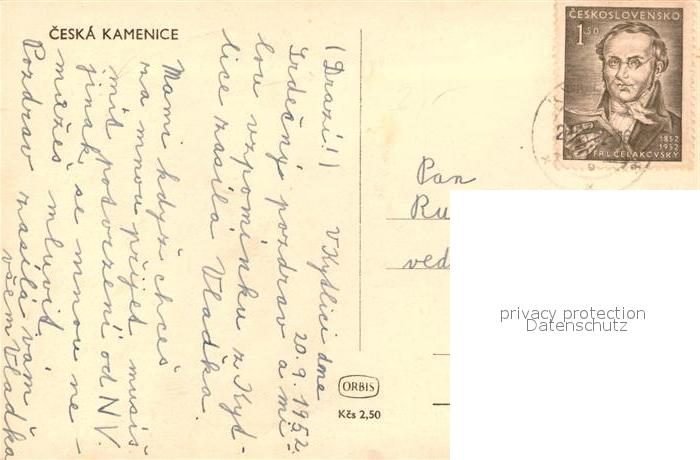 ČESKÁ KAMENICE
V Kytlici dne
20.9.1952.
(Drazí!)
Srdečný pozdrav a mi-
lou vzpomínku z Kyt-
lice zasílá Vladka.
Mami když chceš
za mnou přijet musíš
mít potvrzení od N.V.
jinak se mnou ne-
můžeš mluvit.
Pozdrav zasílá vám
všem Vladka
ORBIS
Kčs 2,50
ČESKOSLOVENSKO
1.50
1852
1952
FR.L.ČELAKOVSKÝ
Pan
Ru
ved
privacy protection
Datenschutz